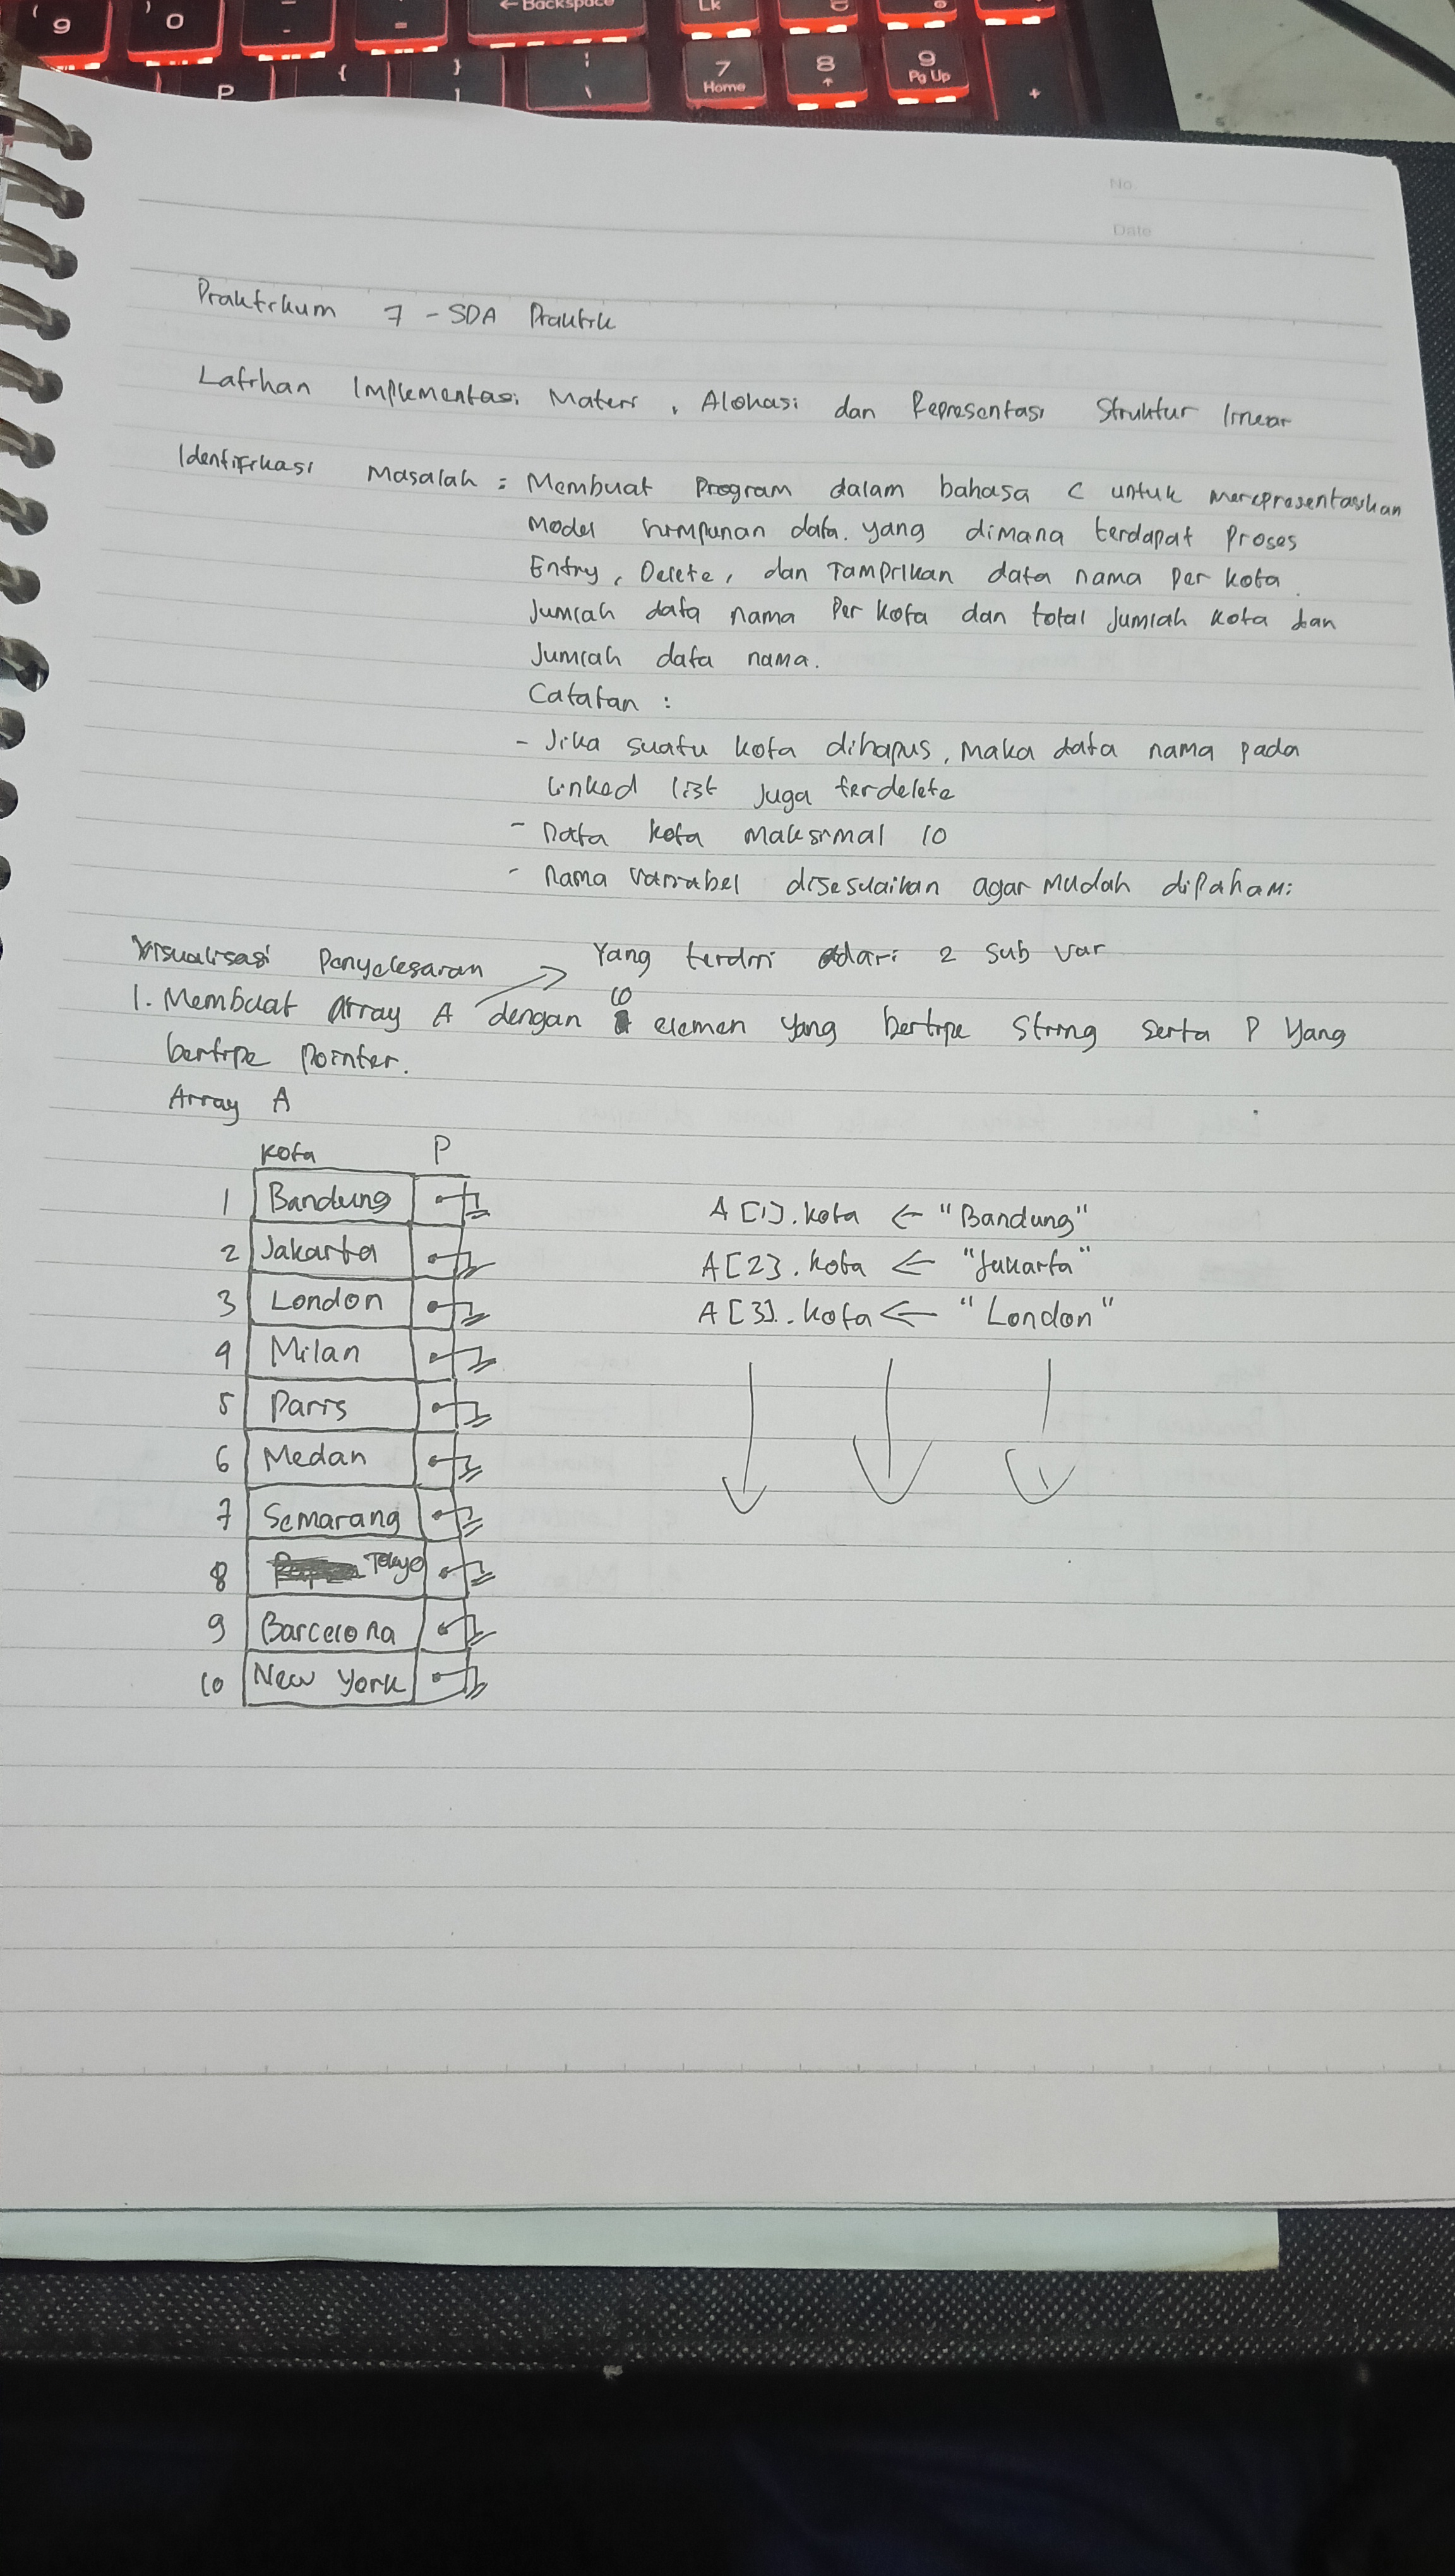 ( 9
) 0
-
← Backspace
Lk
P
{
}
7 Home
8
9 Pg Up
+
No.
Date
Praktikum 7 - SDA Praktik
Latihan Implementasi Materi, Alokasi dan Representasi Struktur linear
Identifikasi Masalah : Membuat Program dalam bahasa C untuk merepresentasikan
Model himpunan data. yang dimana terdapat proses
Entry, Delete, dan Tampilkan data nama per kota.
Jumlah data nama Per kota dan total Jumlah kota dan
Jumlah data nama.
Catatan :
- Jika suatu kota dihapus, maka data nama pada
linked list juga terdelete
- Data kota maksimal 10
- Nama variabel disesuaikan agar mudah dipahami
Visualisasi Penyelesaian
Yang terdiri dari 2 sub var
1. Membuat Array A dengan 10 elemen yang bertipe String serta P yang
bertipe Pointer.
Array A
Kota P
1 Bandung
2 Jakarta
3 London
4 Milan
5 Paris
6 Medan
7 Semarang
8 Tokyo
9 Barcelona
10 New York
A[1].kota ← "Bandung"
A[2].kota ← "Jakarta"
A[3].kota ← "London"